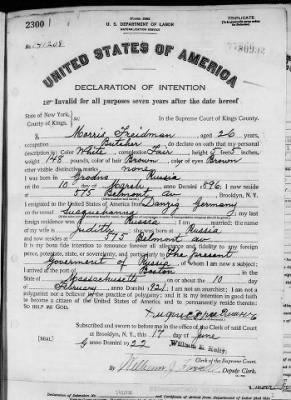 2300
U. S. DEPARTMENT OF LABOR
NATURALIZATION SERVICE
No. 171208
UNITED STATES OF AMERICA
DECLARATION OF INTENTION
Invalid for all purposes seven years after the date hereof
State of New York,
County of Kings,
In the Supreme Court of Kings County.
I, Morris Freidman, aged 26 years,
occupation Butcher, do declare on oath that my personal
description is: Color White, complexion Fair, height 5 feet 5 inches,
weight 148 pounds, color of hair Brown, color of eyes Brown
other visible distinctive marks none
I was born in Grodno Russia
on the 10 day of March, anno Domini 1896; I now reside
at 575 Belmont av Brooklyn, N. Y.
I emigrated to the United States of America from Danzig Germany
on the vessel Susquehanna
foreign residence was Russia; I am married; the name of my
wife is Judith; she was born at Russia
and now resides at 575 Belmont av
It is my bona fide intention to renounce forever all allegiance and fidelity to any foreign
prince, potentate, state, or sovereignty, and particularly to The present
Government of Russia, of whom I am now a subject;
I arrived at the port of Boston, in the
State of Massachusetts on or about the 10 day
of February, anno Domini 1921; I am not an anarchist; I am not a
polygamist nor a believer in the practice of polygamy; and it is my intention in good faith
to become a citizen of the United States of America and to permanently reside therein:
SO HELP ME GOD.
Subscribed and sworn to before me in the office of the Clerk of said Court
at Brooklyn, N. Y., this 17 day of June
anno Domini 1922
[SEAL]
William E. Kelly
Clerk of the Supreme Court.
By William J.
Deputy Clerk.